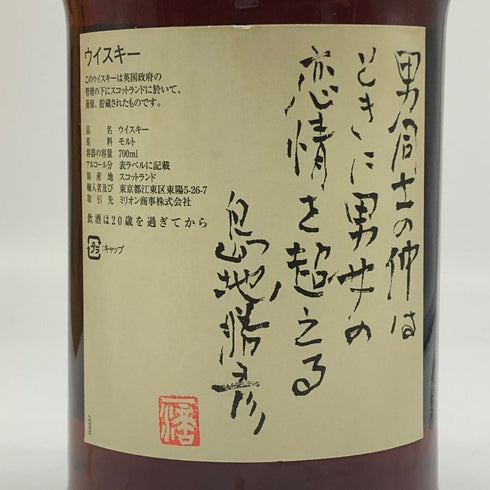 ウイスキー
このウイスキーは英国政府の
管理の下にスコットランドに於いて、
蒸留、貯蔵されたものです。
品名 ウイスキー
原料 モルト
容器の容量 700ml
アルコール分 表ラベルに記載
原産地 スコットランド
輸入者及び 東京都江東区東陽5-26-7
取引先 ミリオン商事株式会社
飲酒は20歳を過ぎてから
プラ :キャップ
男同士の仲は
ときに男女の
恋情を超える
島地勝彦